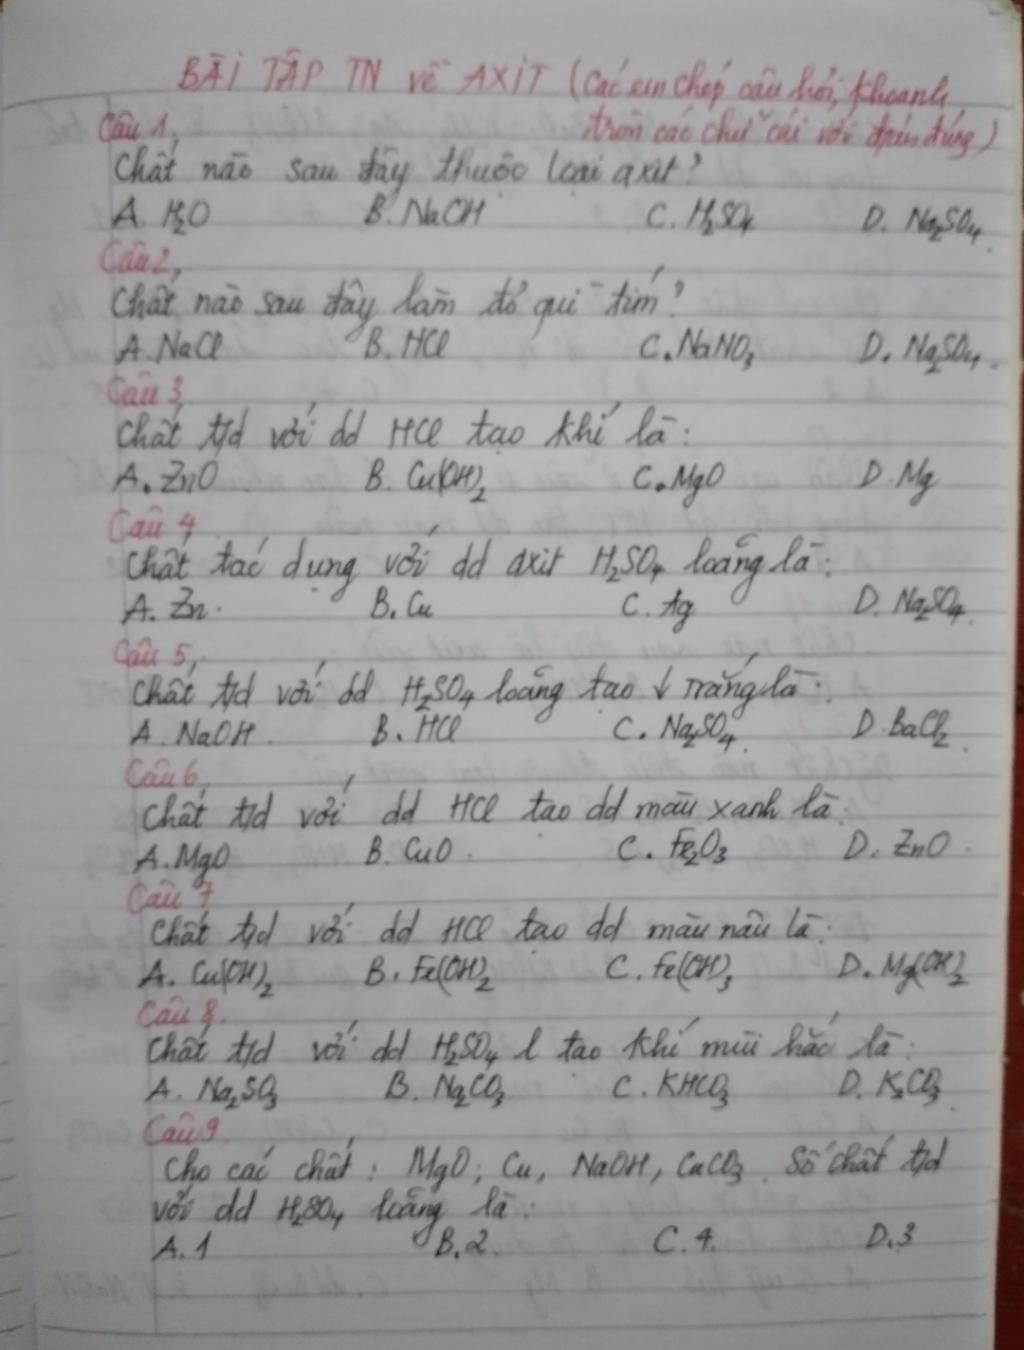 BÀI TẬP TN về AXIT (Các em chép câu hỏi, khoanh
tròn các chữ cái với đ/án đúng)
Câu 1,
Chất nào sau đây thuộc loại axit?
A. H₂O B. NaOH C. H₂SO₄ D. Na₂SO₄.
Câu 2,
Chất nào sau đây làm đỏ quì tím?
A. NaCl B. HCl C. NaNO₃ D. Na₂SO₄.
Câu 3
Chất t/d với dd HCl tạo khí là:
A. ZnO B. Cu(OH)₂ C. MgO D. Mg
Câu 4
Chất tác dụng với dd axit H₂SO₄ loãng là:
A. Zn. B. Cu C. Ag D. Na₂SO₄.
Câu 5,
Chất t/d với dd H₂SO₄ loãng tạo ↓ trắng là:
A. NaOH. B. HCl C. Na₂SO₄. D. BaCl₂.
Câu 6,
Chất t/d với dd HCl tạo dd màu xanh là:
A. MgO B. CuO. C. Fe₂O₃ D. ZnO.
Câu 7
Chất t/d với dd HCl tạo dd màu nâu là:
A. Cu(OH)₂ B. Fe(OH)₂ C. Fe(OH)₃ D. Mg(OH)₂
Câu 8.
Chất t/d với dd H₂SO₄ l tạo khí mùi hắc là:
A. Na₂SO₃ B. Na₂CO₃ C. KHCO₃ D. K₂CO₃.
Câu 9
Cho các chất: MgO, Cu, NaOH, CaCO₃. Số chất t/d
với dd H₂SO₄ loãng là:
A. 1 B. 2. C. 4. D. 3